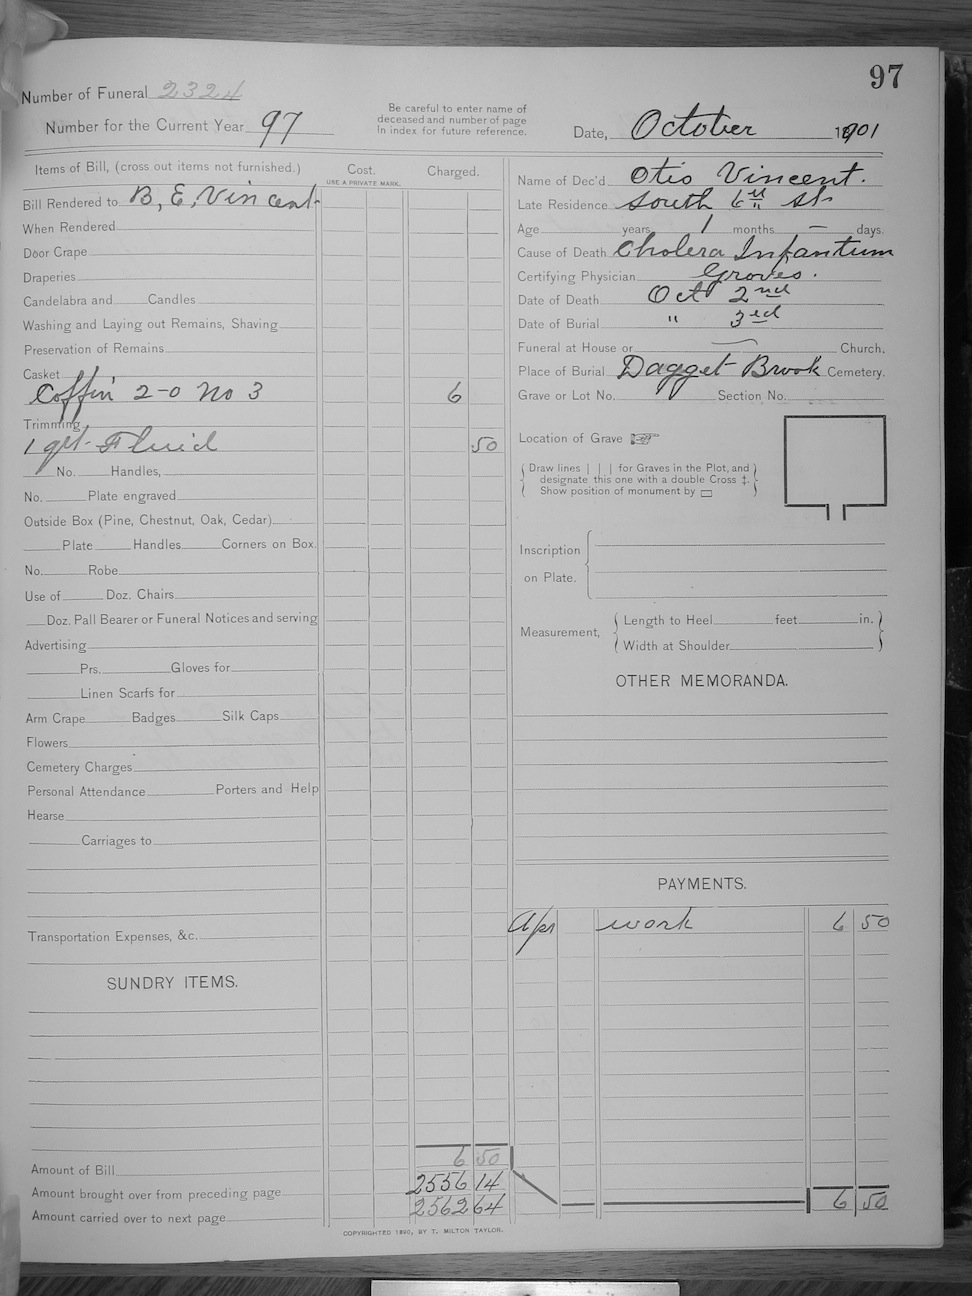 97
Number of Funeral 2324
Number for the Current Year 97
Be careful to enter name of
deceased and number of page
in index for future reference.
Date, October 1901
Items of Bill, (cross out items not furnished.)
Cost.
USE A PRIVATE MARK.
Charged.
Bill Rendered to B, E, Vincent
When Rendered
Door Crape
Draperies
Candelabra and Candles
Washing and Laying out Remains, Shaving
Preservation of Remains
Casket
Coffin 2-0 No 3 6
Trimming
1 qrt Fluid .50
No. Handles,
No. Plate engraved
Outside Box (Pine, Chestnut, Oak, Cedar)
Plate Handles Corners on Box.
No. Robe
Use of Doz. Chairs
Doz. Pall Bearer or Funeral Notices and serving
Advertising
Prs. Gloves for
Linen Scarfs for
Arm Crape Badges Silk Caps
Flowers
Cemetery Charges
Personal Attendance Porters and Help
Hearse
Carriages to
Transportation Expenses, &c.
SUNDRY ITEMS.
Amount of Bill 6 50
Amount brought over from preceding page 2556 14
Amount carried over to next page 2562 64
Name of Dec'd Otis Vincent.
Late Residence South 6th St
Age years 1 months — days.
Cause of Death Cholera Infantum
Certifying Physician Groves.
Date of Death Oct 2nd
Date of Burial " 3rd
Funeral at House or Church.
Place of Burial Dagget Brook Cemetery.
Grave or Lot No. Section No.
Location of Grave ☞
Draw lines | | | for Graves in the Plot, and
designate this one with a double Cross ‡.
Show position of monument by ▭
Inscription
on Plate.
Measurement, Length to Heel feet in.
Width at Shoulder
OTHER MEMORANDA.
PAYMENTS.
Apr work 6 50
6 50
COPYRIGHTED 1890, BY T. MILTON TAYLOR.